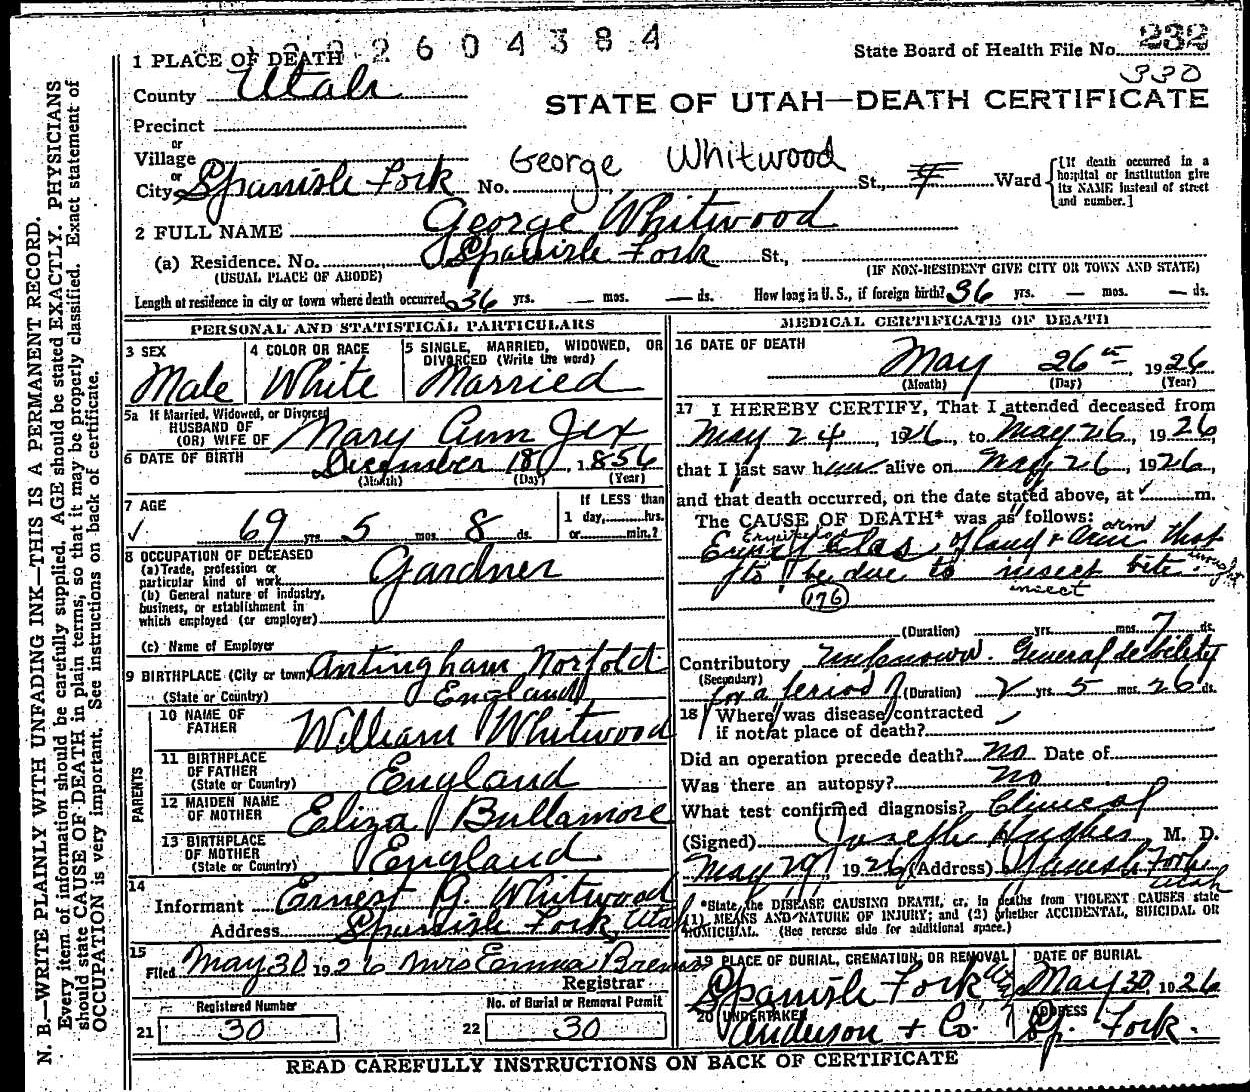 1 PLACE OF DEATH 2604384
State Board of Health File No. 232
330
County Utah
STATE OF UTAH—DEATH CERTIFICATE
Precinct
or
Village
or
City Spanish Fork No. George Whitwood St., 4 Ward {[If death occurred in a hospital or institution give its NAME instead of street and number.]
2 FULL NAME George Whitwood
(a) Residence. No. Spanish Fork St.,
(USUAL PLACE OF ABODE) (IF NON-RESIDENT GIVE CITY OR TOWN AND STATE)
Length of residence in city or town where death occurred 36 yrs. — mos. — ds. How long in U. S., if foreign birth? 36 yrs. — mos. — ds.
PERSONAL AND STATISTICAL PARTICULARS
3 SEX
Male
4 COLOR OR RACE
White
5 SINGLE, MARRIED, WIDOWED, OR
DIVORCED (Write the word)
Married
5a If Married, Widowed, or Divorced
HUSBAND OF
(OR) WIFE OF Mary Ann Jex
6 DATE OF BIRTH December 18, 1856
(Month) (Day) (Year)
7 AGE
✓ 69 yrs 5 mos. 8 ds.
If LESS than
1 day,......hrs.
or......min.?
8 OCCUPATION OF DECEASED
(a) Trade, profession or
particular kind of work Gardner
(b) General nature of industry,
business, or establishment in
which employed (or employer)
(c) Name of Employer
9 BIRTHPLACE (City or town) Antingham Norfolk
(State or Country) England
PARENTS
10 NAME OF
FATHER William Whitwood
11 BIRTHPLACE
OF FATHER
(State or Country) England
12 MAIDEN NAME
OF MOTHER Eliza Bullamore
13 BIRTHPLACE
OF MOTHER
(State or Country) England
14
Informant Ernest G. Whitwood
Address Spanish Fork, Utah
15
Filed May 30 1926 Mrs Emma
Registrar
Registered Number
21 30
No. of Burial or Removal Permit
22 30
MEDICAL CERTIFICATE OF DEATH
16 DATE OF DEATH
May 26th, 1926
(Month) (Day) (Year)
17 I HEREBY CERTIFY, That I attended deceased from
May 24, 1926, to May 26, 1926,
that I last saw him alive on May 26, 1926,
and that death occurred, on the date stated above, at ✓ m.
The CAUSE OF DEATH* was as follows:
Erysipelas arm
of hand & arm that
be due to insect bite. thought
176 insect
(Duration) yrs. mos. 7 ds.
Contributory Unknown. General debility
(Secondary)
for a period of (Duration) 2 yrs. 5 mos. 26 ds.
18 Where was disease contracted
if not at place of death?
Did an operation precede death? No Date of
Was there an autopsy? no
What test confirmed diagnosis? Clinical
(Signed) Joseph Hughes, M. D.
May 29, 1926 (Address) Spanish Fork
Utah
*State the DISEASE CAUSING DEATH, or, in deaths from VIOLENT CAUSES state
(1) MEANS AND NATURE OF INJURY; and (2) whether ACCIDENTAL, SUICIDAL OR
HOMICIDAL. (See reverse side for additional space.)
19 PLACE OF BURIAL, CREMATION, OR REMOVAL
Spanish Fork Utah
DATE OF BURIAL
May 30, 1926
20 UNDERTAKER
Anderson + Co.
ADDRESS
Sp. Fork.
READ CAREFULLY INSTRUCTIONS ON BACK OF CERTIFICATE
N. B.—WRITE PLAINLY WITH UNFADING INK—THIS IS A PERMANENT RECORD.
Every item of information should be carefully supplied. AGE should be stated EXACTLY. PHYSICIANS
should state CAUSE OF DEATH in plain terms, so that it may be properly classified. Exact statement of
OCCUPATION is very important. See instructions on back of certificate.